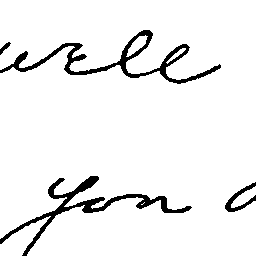 well
you